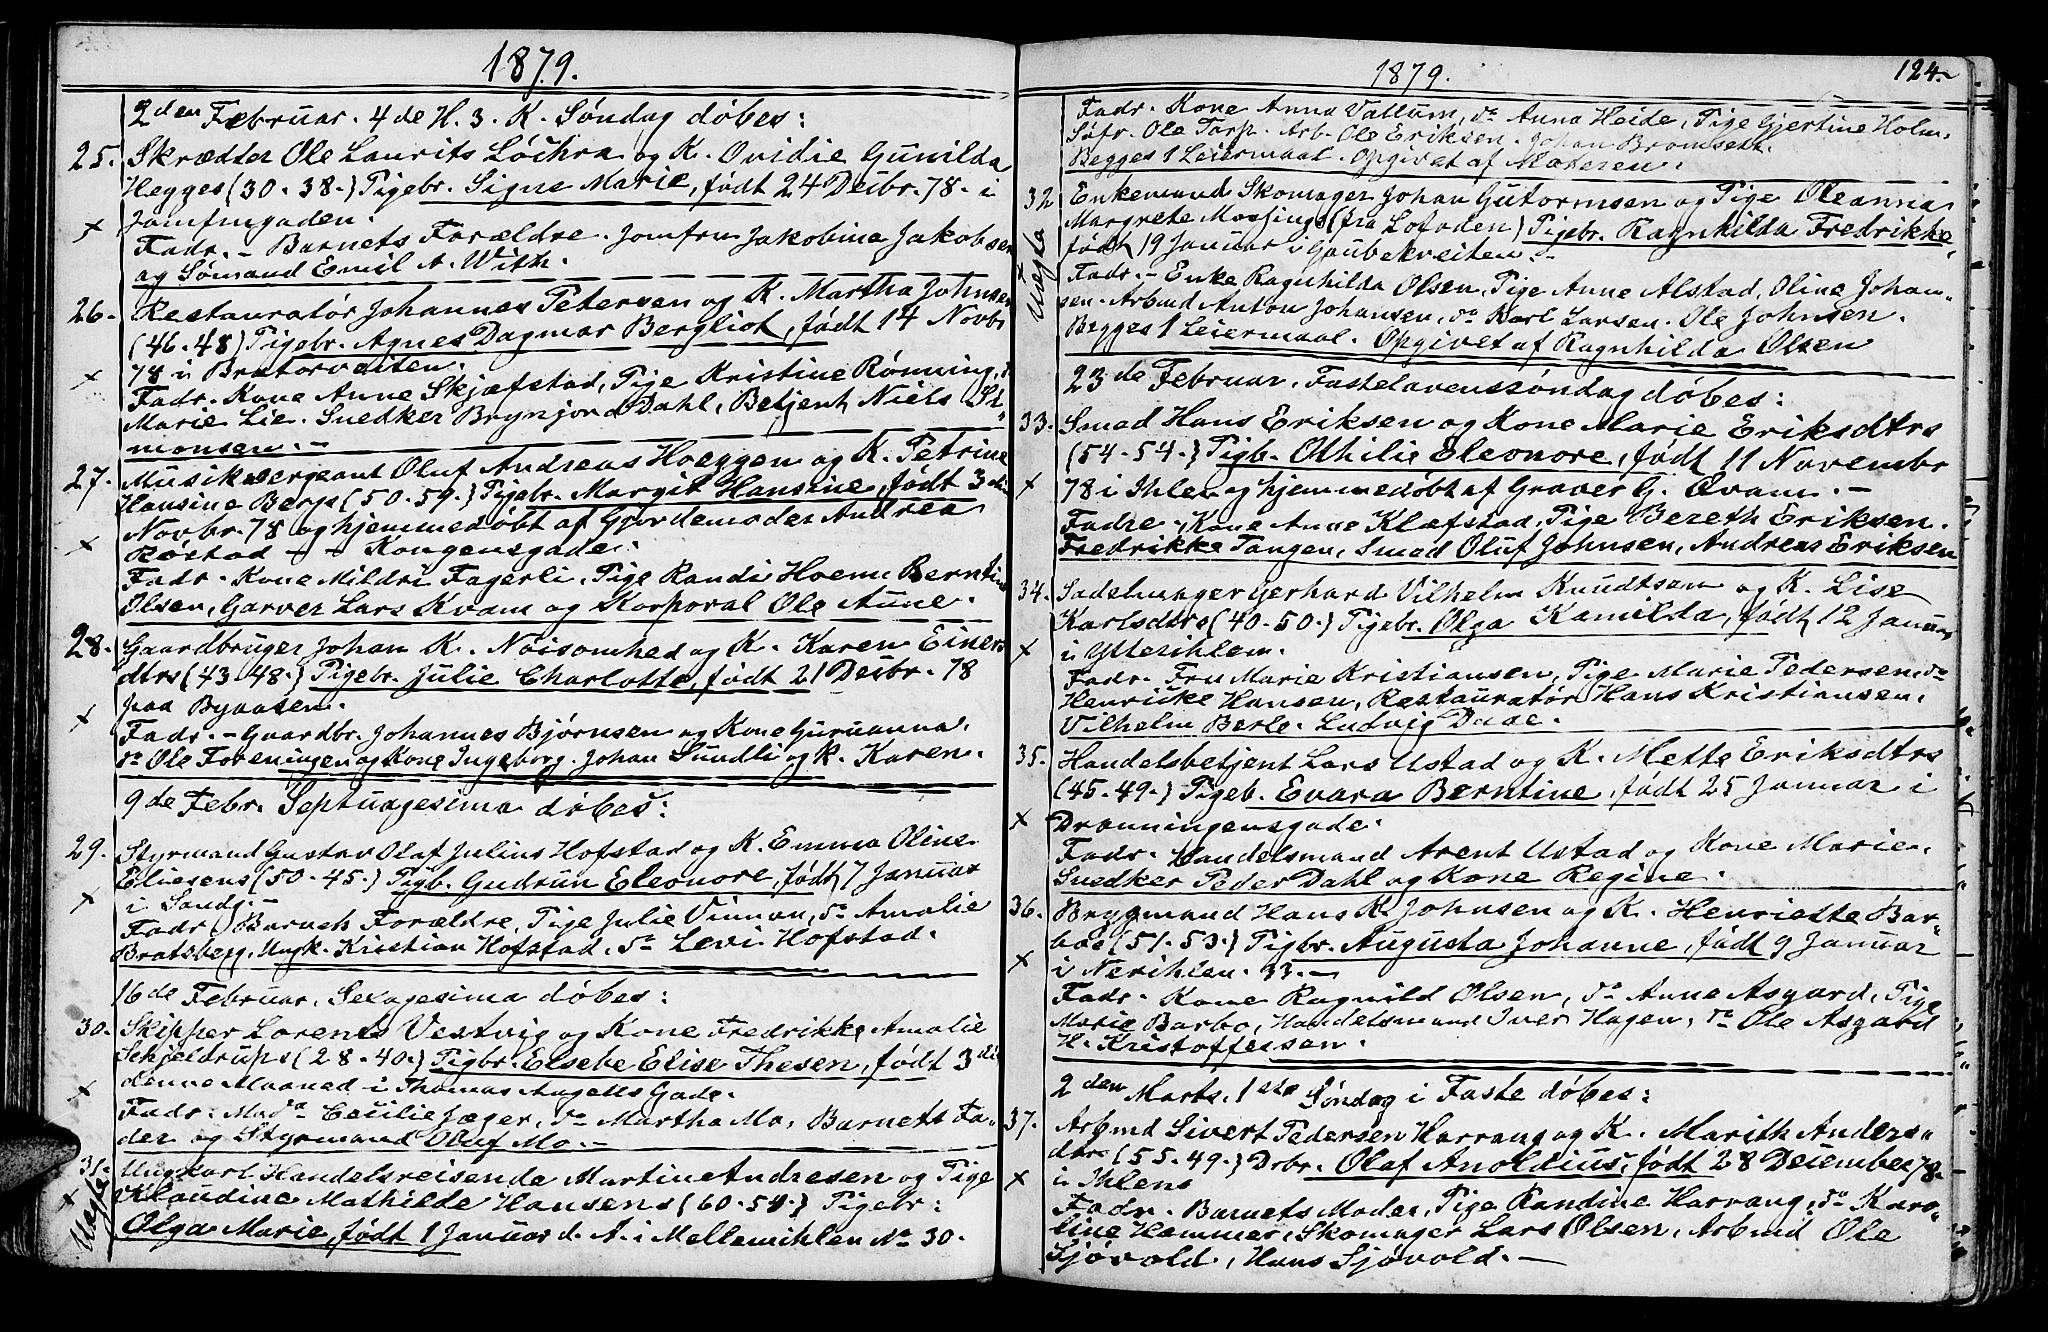 1879.
2den Februar. 4de H. 3. K. Søndag døbes:
25. Skrædter Ole Laurits Løchra og K. Ovidie Gunilda
Hegges (30-38-) Pigebr. Signe Marie, født 24 Decbr. 78 - i
Jomfrugaden.
Fadr. - Barnets Forældre. Jomfru Jakobine Jakobsen
og Sømand Emil A. With.
26. Restauratør Johannes Petersen og K. Martha Johnsen
(46-48) Pigebr. Agnes Dagmar Bergliot, født 14 Novbr
78 i Bratørveiten.
Fadr. Kone Anne Skjæfstad, Pige Kristine Rønning, do
Marie Lie. Snedker Brynjor Dahl, Betjent Niels Si-
monsen. -
27. Musiksergeant Oluf Andreas Hoeggen og K. Petrine
Hansine Bergs (50-59-) Pigebr. Margit Hansine, født 3die
Novbr. 78 og hjemmedøbt af Gjordemoder Andrea
Røstad - - Kongensgade.
Fadr. Kone Mildri Fagerli, Pige Randi Hoem, Berntine
Olsen, Garver Lars Kvam og Korporal Ole Aune.
28. Gaardbruger Johan K. Nøisomhed og K. Karen Einers
dtrs (43-48-) Pigebr. Julie Charlotte, født 21 Decbr. 78
paa Byaasen.
Fadr. - Gaardbr. Johannes Bjørnsen og Kone Guruanna.
do Ole Foreningen og Kone Ingeborg. Johan Sundli og K. Karen.
9de Febr. Septuagesima døbes:
29. Styrmand Gustav Olaf Julius Hofstad og K. Emma Oline
Eliesens (50-45-) Pigb. Gudrun Eleonore, født 7 Januar
i Sandg. -
Fadr. Barnets Forældre, Pige Julie Vinnan, do Amalie
Bratsberg, Ungk. Kristian Hofstad, do Levi Hofstad.
16de Februar. Sexagesima døbes:
30. Skipper Lorents Vestvig og Kone Fredrikke Amalie
Schjeldrups (28-40-) Pigbr. Elsebe Elise Thesen, født 3die
denne Maaned i Thomas Angells Gade.
Fadr. Mada Cecilie Jæger, do Martha Mo, Barnets Fa-
der og Styrmand Oluf Mo. -
31. Ungkarl Handelsreisende Martin Andresen og Pige
Uægte Klaudine Mathilde Hansens (60-54-) Pigebr:
Olga Marie, født 1 Januar d. A. i Mellemihlen No 30.
1879. 124.
Fadr. Kone Anna Vallum, do Anna Heide, Pige Gjertine Holm.
Søfr. Ole Torp. Arb. Ole Eriksen. Johan Bromseth.
Begges 1 Leiermaal. Opgivet af Moderen.
32 Enkemand Skomager Johan Gutormsen og Pige Oleanna
Margrete Mosjinge (fra Lofoden) Pigebr. Ragnhilda Fredrikke
Uægte født 19 Januar i Gaubekveiten. -
Fadr. - Enke Ragnhilda Olsen, Pige Anne Alstad, Oline Johan-
sen. Arbmd Anton Johansen, do Karl Larsen. Ole Johnsen.
Begges 1 Leiermaal. Opgivet af Ragnhilda Olsen
23de Februar. Fastelavenssøndag døbes:
33. Smed Hans Eriksen og Kone Marie Eriksdtrs
(54-54-) Pigb. Othilie Eleonore, født 11 Novembr
78 i Ihlen og hjemmedøbt af Graver G. Qvam. -
Fadre. Kone Anne Klæfstad, Pige Bereth Eriksen.
Fredrikke Tangen, Smed Oluf Johnsen, Andreas Eriksen
34. Sadelmager Gerhard Vilhelm Knudtsen og K. Lise
Karlsdtrs (40-50-) Pigebr. Olga Kamilda, født 12 Januar
i Ytterihlen.
Fadr. Fru Marie Kristiansen, Pige Marie Pedersen, do
Henrikke Hansen, Restauratør Hans Kristiansen.
Vilhelm Berle. Ludvig Daae.
35. Handelsbetjent Lars Ustad og K. Mette Eriksdtrs
(45-49-) Pigeb. Evara Berntine, født 25 Januar i
Dronningensgade.
Fadr. Handelsmand Arent Ustad og Kone Marie.
Snedker Peder Dahl og Kone Regine.
36. Brygmand Hans K. Johnsen og K. Henriette Bar-
boe (51-53-) Pigbr. Augusta Johanne, født 9 Januar
i Nerihlen. 33. -
Fadr. Kone Ragnild Olsen, do Anne Asgard, Pige
Marie Barbo, Handelsmand Iver Hagen, do Ole Asgard
H. Kristoffersen.
2den Marts. 1ste Søndag i Faste døbes:
37. Arbmd Sivert Pedersen Harrang og K. Marith Anders-
dtrs (55-49-) Drbr. Olaf Anoldius, født 28 December 78.
i Ihlens
Fadr. Barnets Moder, Pige Randine Harrang, do Karo-
line Hammer, Skomager Lars Olsen, Arbmd Ole
Sjøvold, Hans Sjøvold. -